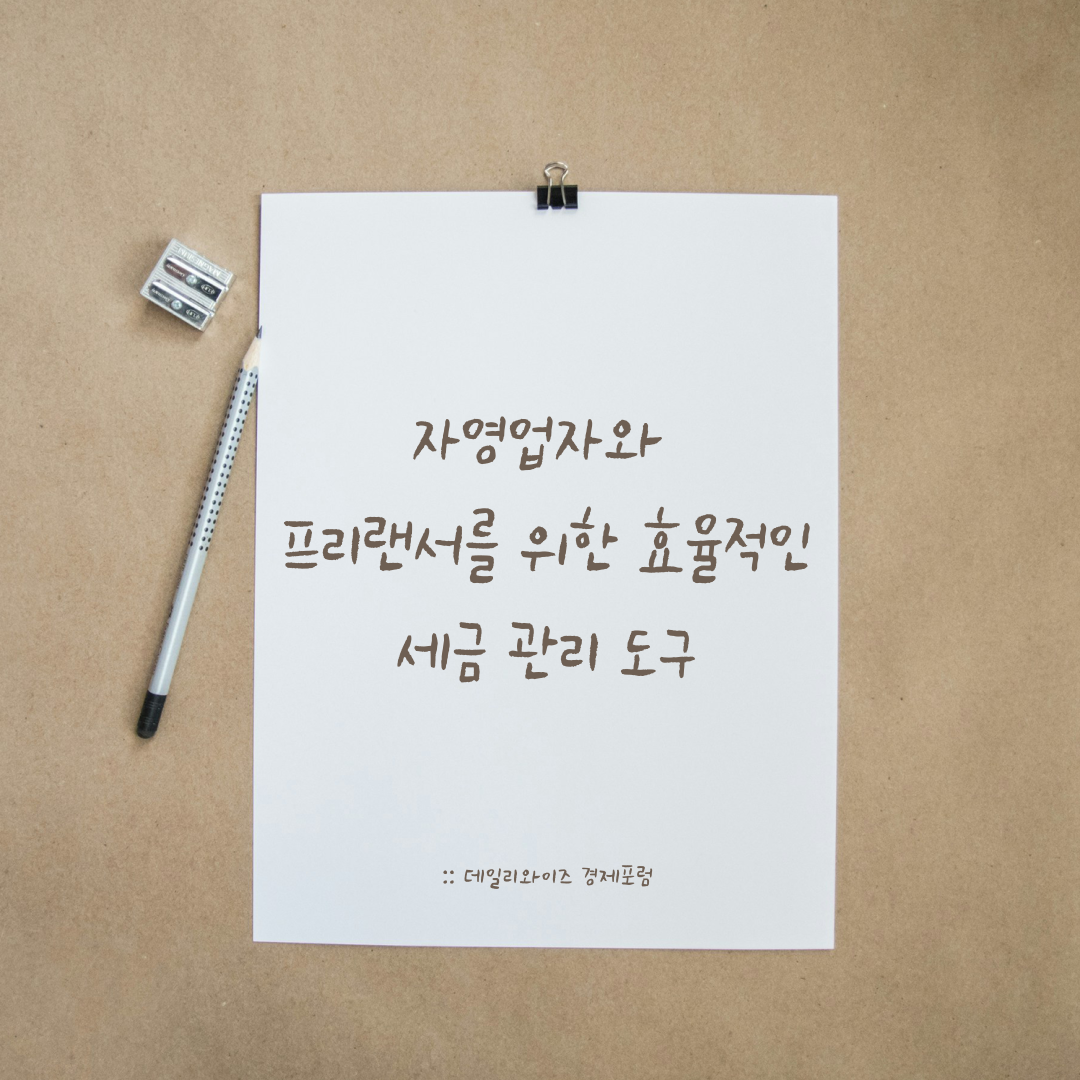 자영업자와
프리랜서를 위한 효율적인
세금 관리 도구
:: 데일리와이즈 경제포럼